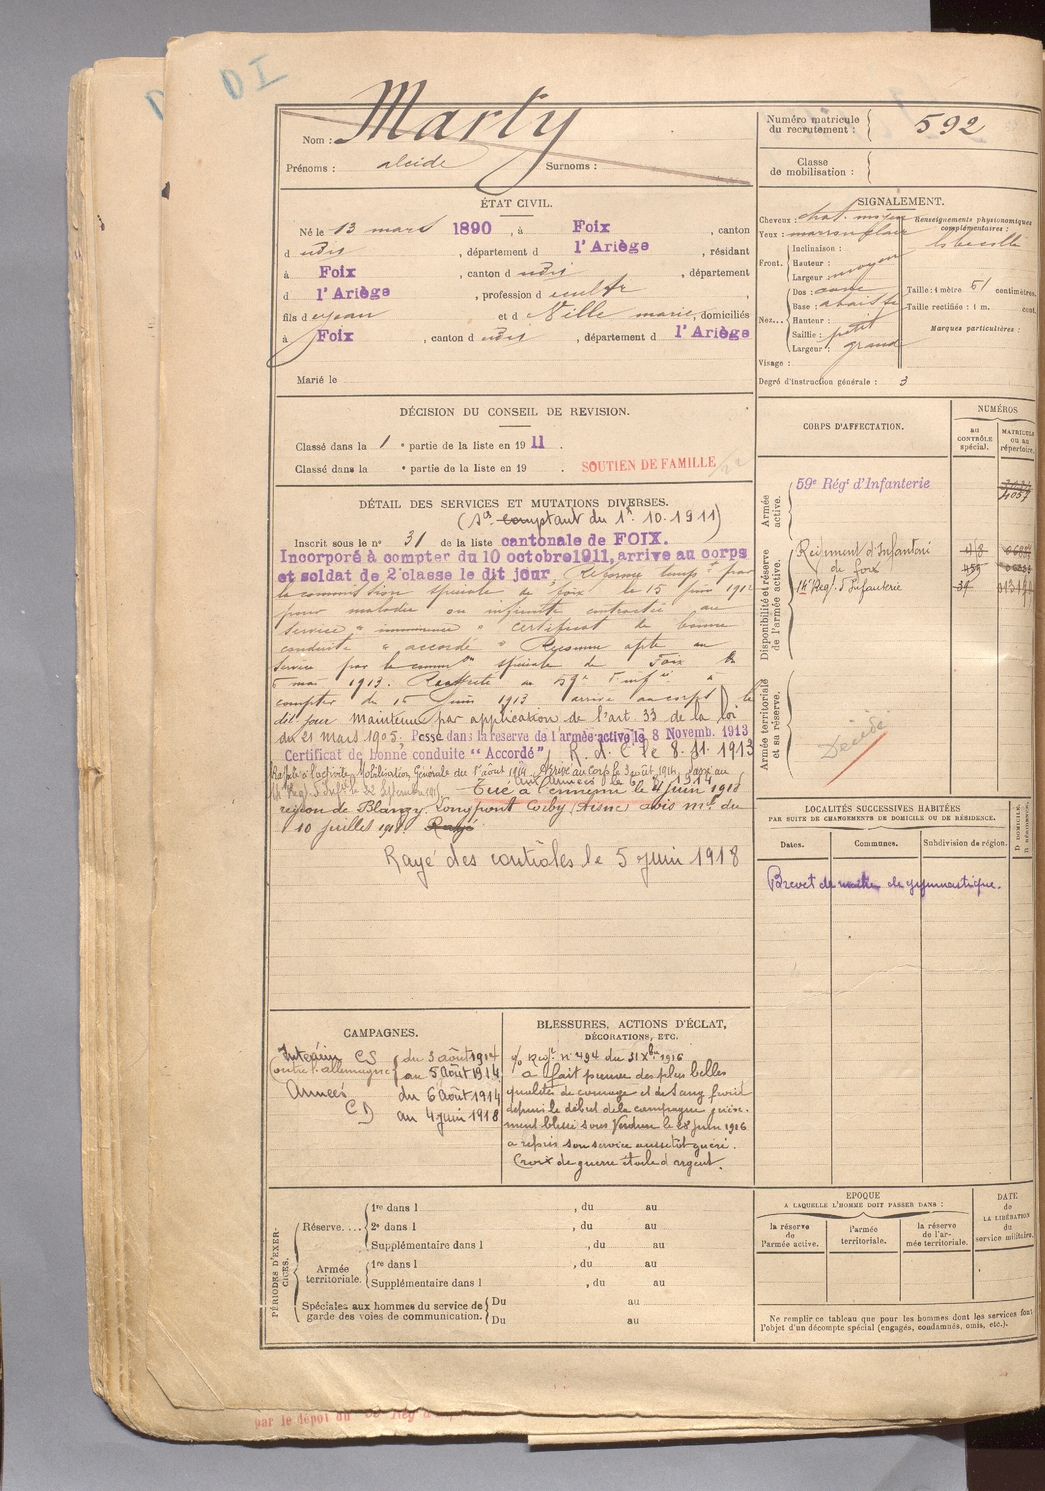 DI
Nom : Marty
Prénoms : alcide Surnoms :
Numéro matricule du recrutement : 592
Classe de mobilisation :
ÉTAT CIVIL.
Né le 13 mars 1890, à Foix, canton
d udit, département d l'Ariège, résidant
à Foix, canton d udit, département
d l'Ariège, profession d
fils d e jean et d Ville marie, domiciliés
à Foix, canton d udit, département d l'Ariège
Marié le
SIGNALEMENT.
Cheveux : chat. moyen
Yeux : marron clair
Inclinaison :
Front. Hauteur :
Largeur : moyen
Dos : cave
Base : abaissée
Nez... Hauteur :
Saillie : petit
Largeur : grand
Visage :
Renseignements physionomiques complémentaires :
Taille : 1 mètre 61 centimètres.
Taille rectifiée : 1 m. cent.
Marques particulières :
Degré d'instruction générale : 3
DÉCISION DU CONSEIL DE REVISION.
Classé dans la 1e partie de la liste en 1911.
Classé dans la e partie de la liste en 19 . SOUTIEN DE FAMILLE
DÉTAIL DES SERVICES ET MUTATIONS DIVERSES.
comptant du 1er 10.1911)
Inscrit sous le n° 31 de la liste cantonale de FOIX.
Incorporé à compter du 10 octobre 1911, arrive au corps
et soldat de 2e classe le dit jour, Réformé tempre par
la commission spéciale de Foix le 15 juin 1912
pour maladie ou infirmité contractée au
service certificat de bonne
conduite "accordé" Reconnu apte au
service par la common spéciale de Foix le
6 mai 1913. au 59e d'infie à
compter du 15 juin 1913 arrivé au corps le
dit jour Maintenu par application de l'art 33 de la loi
du 21 mars 1905. Passé dans la réserve de l'armée active le 8 Novemb. 1913
Certificat de bonne conduite "Accordé", R. d. C le 8.11.1913
Rappelé à l'activité Mobilisation Générale du 1er août 1914 Arrivé au corps le 3 août 1914 Passé au
14e Régt d'Infie le 22 Septembre
aux armées le 6 1914
Tué à l'ennemi le 4 juin 1918
région de Blanzy Longpont Corby (Aisne) avis ml du
10 juillet 1918. Rayé
Rayé des contrôles le 5 juin 1918
CORPS D'AFFECTATION.
NUMÉROS
au CONTRÔLE spécial.
MATRICULE ou au répertoire.
Armée active.
59e Régt d'Infanterie
4052
Disponibilité et réserve de l'armée active.
Régiment d'Infanterie
de Foix
14e Régt d'Infanterie
Armée territoriale et sa réserve.
Décédé
LOCALITÉS SUCCESSIVES HABITÉES
PAR SUITE DE CHANGEMENTS DE DOMICILE OU DE RÉSIDENCE.
Dates. Communes. Subdivision de région.
D. DOMICILE. R. RÉSIDENCE.
Brevet de maître de gymnastique.
CAMPAGNES.
Intérieur CS du 3 août 1914
Contre l'allemagne au 5 août 1914
Armées du 6 août 1914
CD au 4 juin 1918
BLESSURES, ACTIONS D'ÉCLAT,
DÉCORATIONS, ETC.
o/o Régt n° 494 du 31 Xbre 1916
a fait preuve des plus belles
qualités de courage et de sang froid
depuis le début de la campagne griève-
ment blessé sous Verdun le 28 juin 1916
a repris son service aussitôt guéri.
Croix de guerre étoile d'argent.
PÉRIODES D'EXERCICES.
Réserve.... 1re dans l , du au
2e dans l , du au
Supplémentaire dans l , du au
Armée territoriale. 1re dans l , du au
Supplémentaire dans l , du au
Spéciales aux hommes du service de garde des voies de communication. Du au
Du au
EPOQUE
A LAQUELLE L'HOMME DOIT PASSER DANS :
la réserve de l'armée active.
l'armée territoriale.
la réserve de l'armée territoriale.
DATE de LA LIBÉRATION du service militaire.
Ne remplir ce tableau que pour les hommes dont les services font
l'objet d'un décompte spécial (engagés, condamnés, omis, etc.).
par le dépôt du